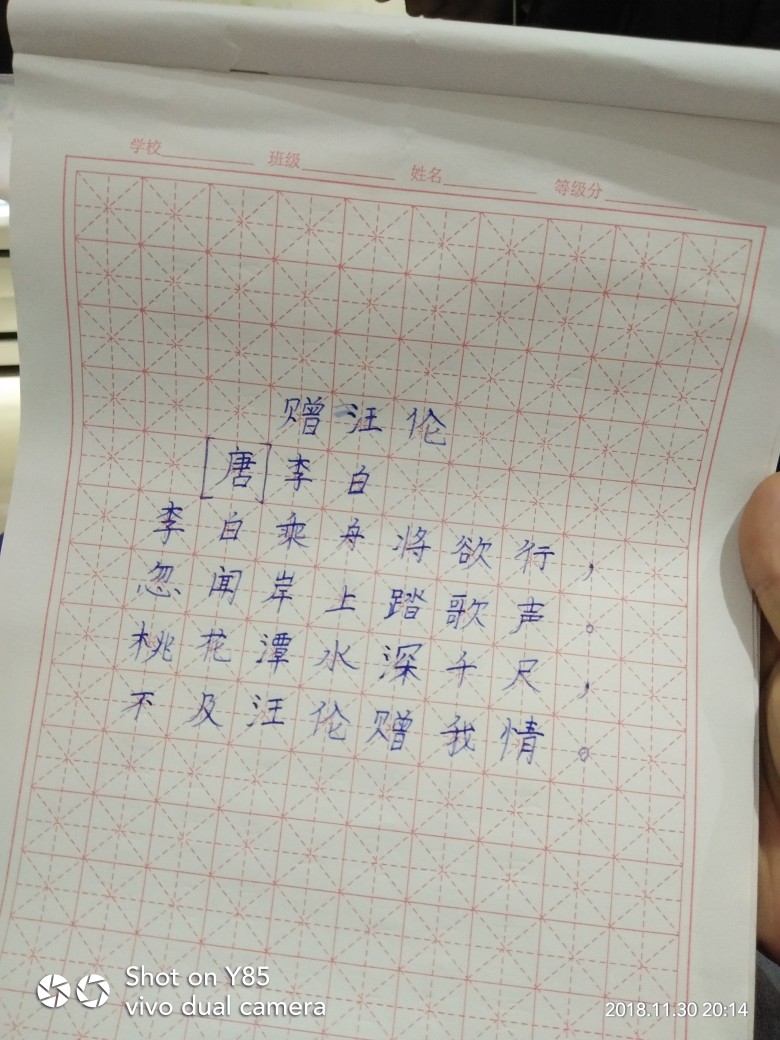 学校 班级 姓名 等级分
赠汪伦
[唐]李白
李白乘舟将欲行，
忽闻岸上踏歌声。
桃花潭水深千尺，
不及汪伦赠我情。
Shot on Y85
vivo dual camera
2018.11.30 20:14